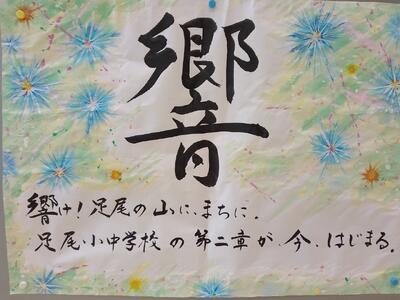 響
響け！足尾の山に、まちに。
足尾小中学校の第二章が、今、はじまる。